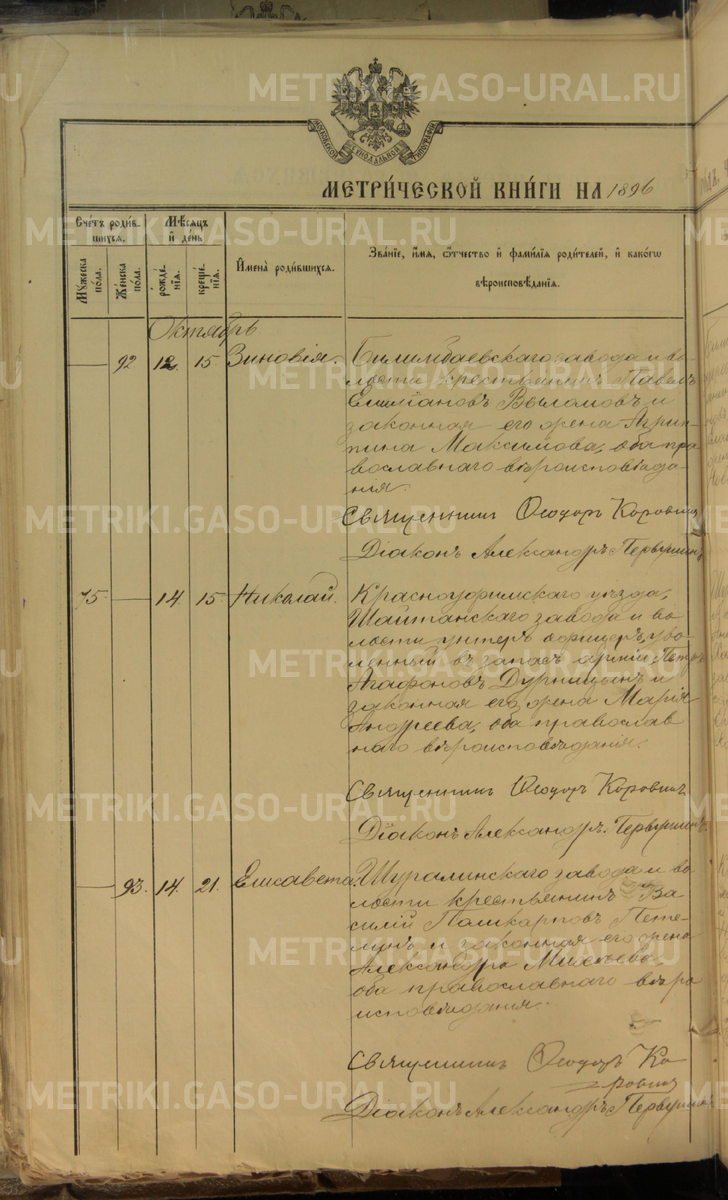 METRIKI.GASO-URAL.RU
МОСКОВСКОЙ СѴНОДАЛЬНОЙ ТИПОГРАФІИ
МЕТРИ́ЧЕСКОЙ КНИ́ГИ НА 1896
Счетъ роди́вшихся.
Мѣсяцъ и день
Имена́ роди́вшихся.
Зва́ніе, и́мя, ѻ҆́тчество и фами́лія роди́телей, и како́гѡ вѣроисповѣ́данія.
Му́жеска по́ла.
Же́нска по́ла.
рожде́нія.
креще́нія.
Октябрь
92 12 15 Зиновія.
Билимбаевскаго завода и во-
лости крестьянинъ Павелъ
Емиліановъ и
законная его жена Агрип-
пина Максимова, оба пра-
вославнаго вѣроисповѣда-
нія.
Священникъ Ѳеодоръ Коровинъ
Діаконъ Александръ Первушинъ
75 14 15 Николай.
Красноуфимскаго уѣзда,
Шайтанскаго завода и во-
лости унтеръ офицеръ, уво-
ленный въ запасъ арміи, Петръ
Агафоновъ Дурницынъ и
законная его жена Марія
Андреева, оба православ-
наго вѣроисповѣданія.
Священникъ Ѳеодоръ Коровинъ
Діаконъ Александръ Первушинъ.
93. 14. 21. Елисавета.
Шуралинскаго завода и во-
лости крестьянинъ Ва-
силій Поликарповъ Пете-
линъ и законная его жена
Александра
оба православнаго вѣро-
исповѣданія.
Священникъ Ѳеодоръ Ко-
ровинъ
Діаконъ Александръ Первушинъ